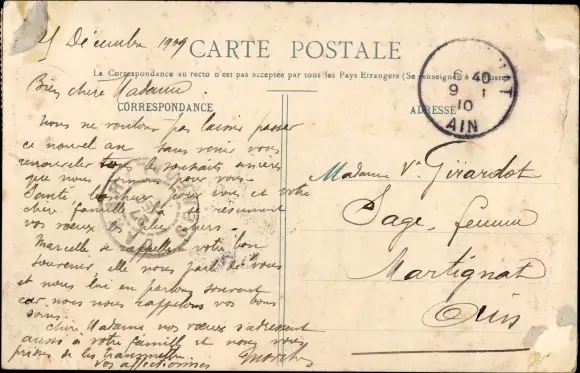 Décembre 1909
CARTE POSTALE
La Correspondance au recto n'est pas acceptée par tous les Pays Etrangers (Se renseigner à la Poste)
Bien chère Madame.
CORRESPONDANCE
Nous ne voulons pas laisser passer
ce nouvel an sans venir vous
renouveler tous les souhaits sincères
que nous formons pour vous.
Santé bonheur pour vous et votre
chère famille là résument
vos vœux les plus chers.
Marcelle se rappelle à votre bon
souvenir, elle nous parle de vous
et nous lui en parlons souvent
car nous nous rappelons vos bons
soins.
chère Madame nos vœux s'adressent
aussi à votre famille et nous vous
prions de les transmettre
vos affectionnés
ADRESSE
Madame Ve Girardot
Sage femme
Martignat
Ain
6 40
9 1
10
AIN